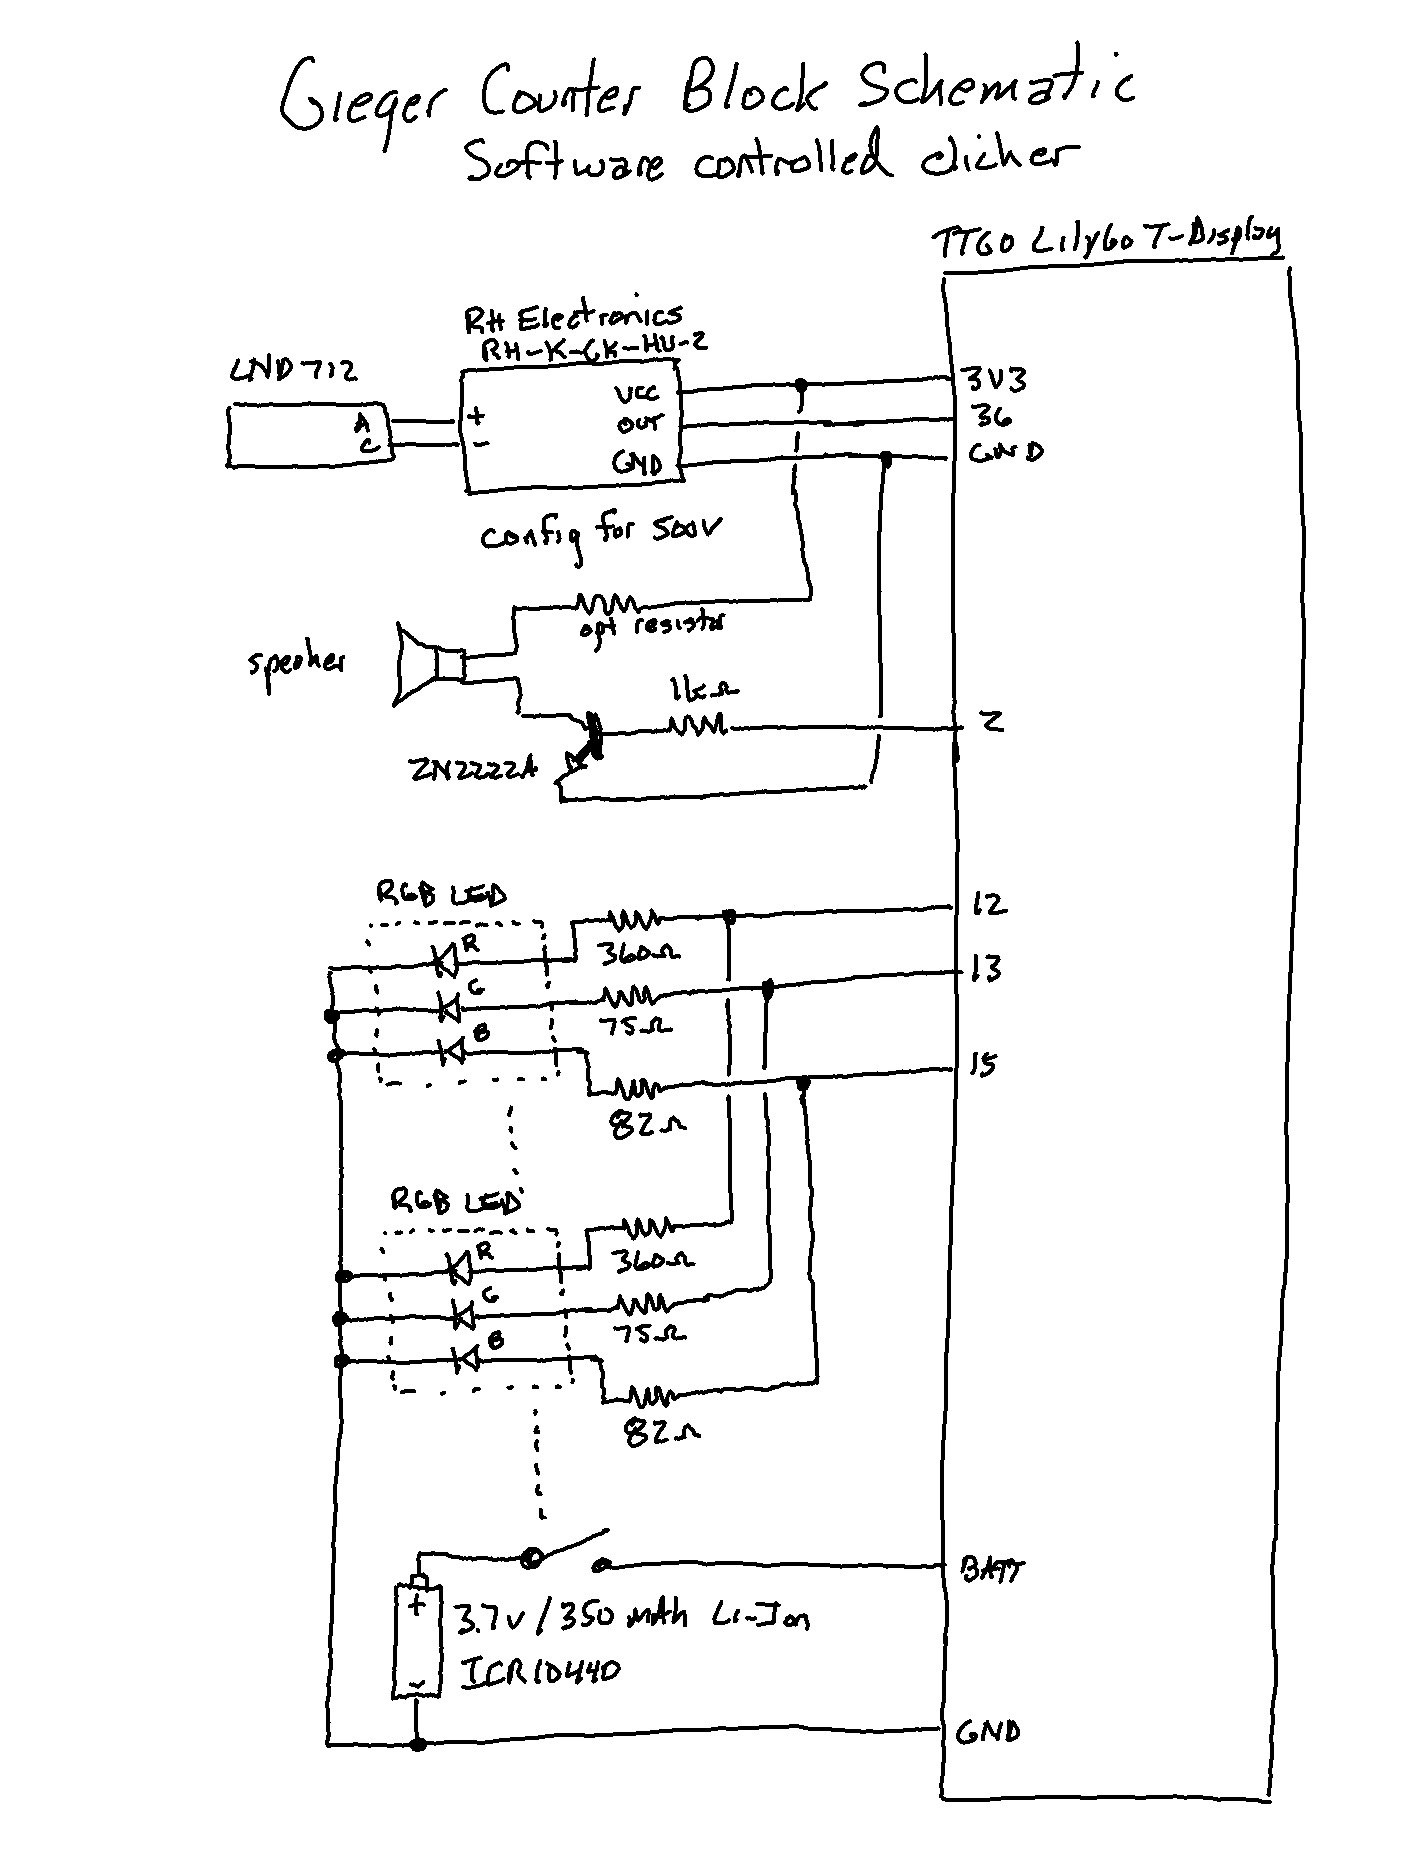 Gieger Counter Block Schematic
Software controlled clicker
TTGO LilyGo T-Display
RH Electronics
RH-K-GK-HV-2
LND 712
A
C
+
-
VCC
OUT
GND
3V3
36
GND
config for 500V
opt resistor
speaker
1kΩ
2
2N2222A
RGB LED
R
G
B
360Ω
75Ω
82Ω
12
13
15
RGB LED
R
G
B
360Ω
75Ω
82Ω
BATT
+
-
3.7v / 350 mAh Li-Ion
ICR10440
GND